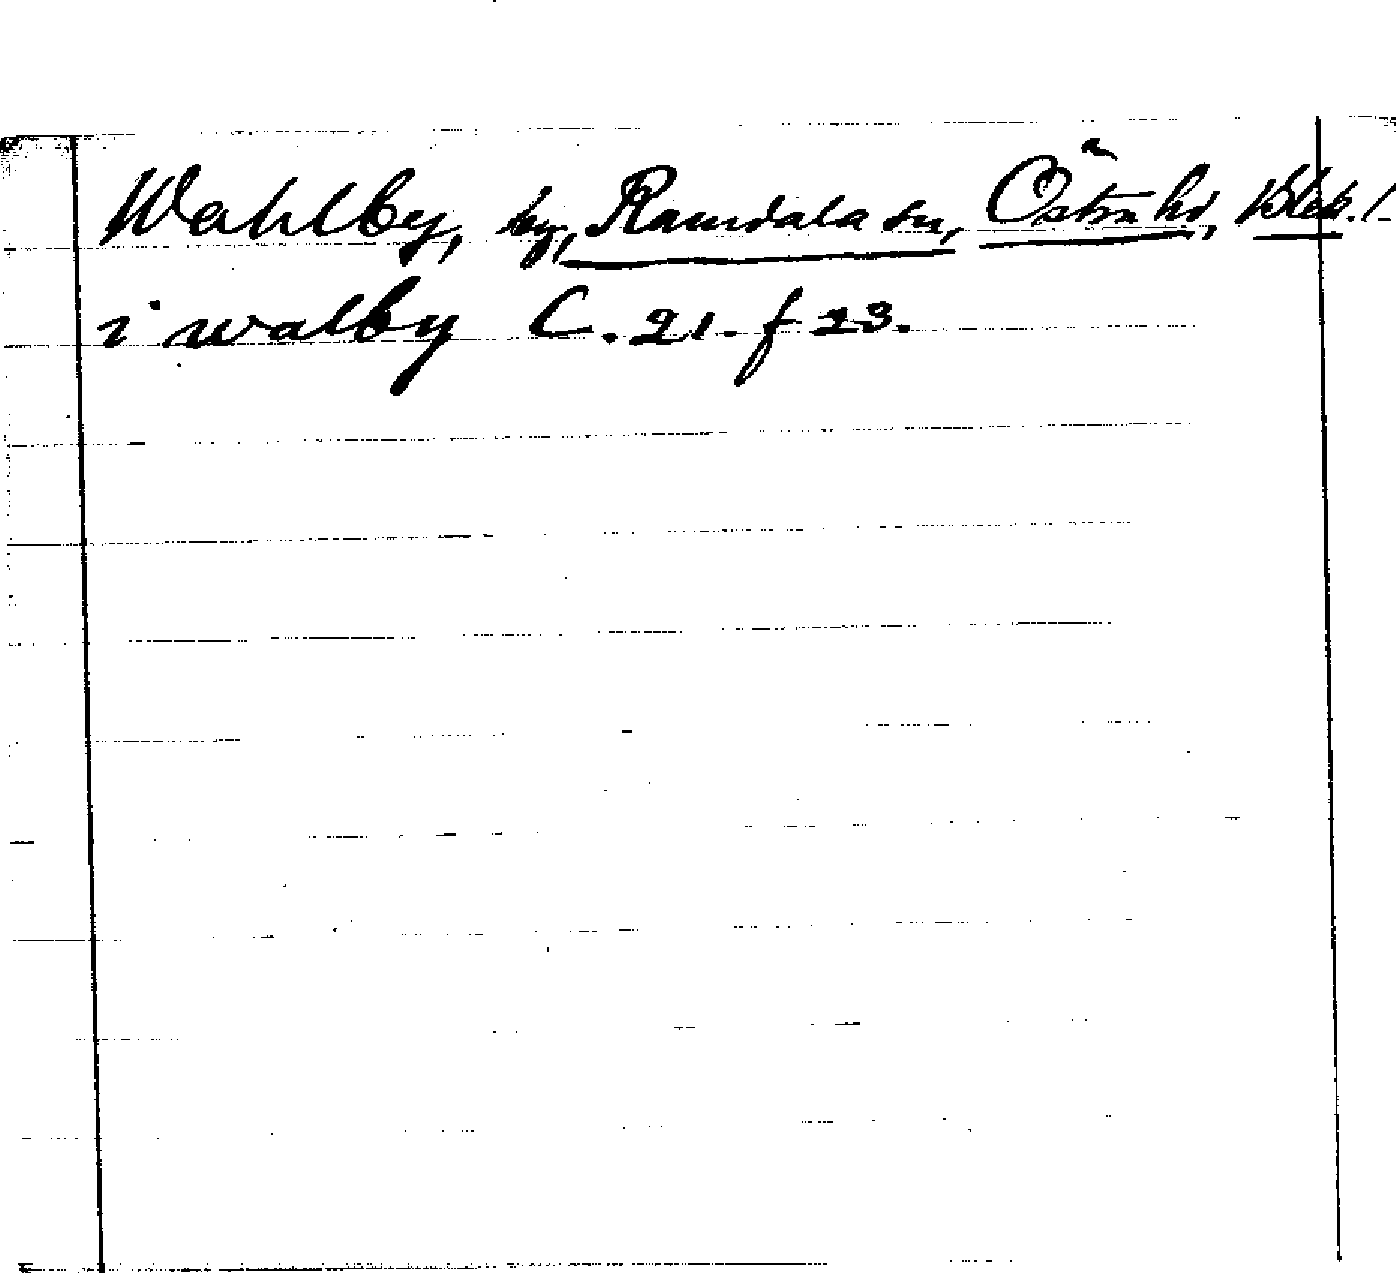 Wahlby, by, Ramdala sn, Östra hd, Blek. l.
i walby C. 21. f 23.